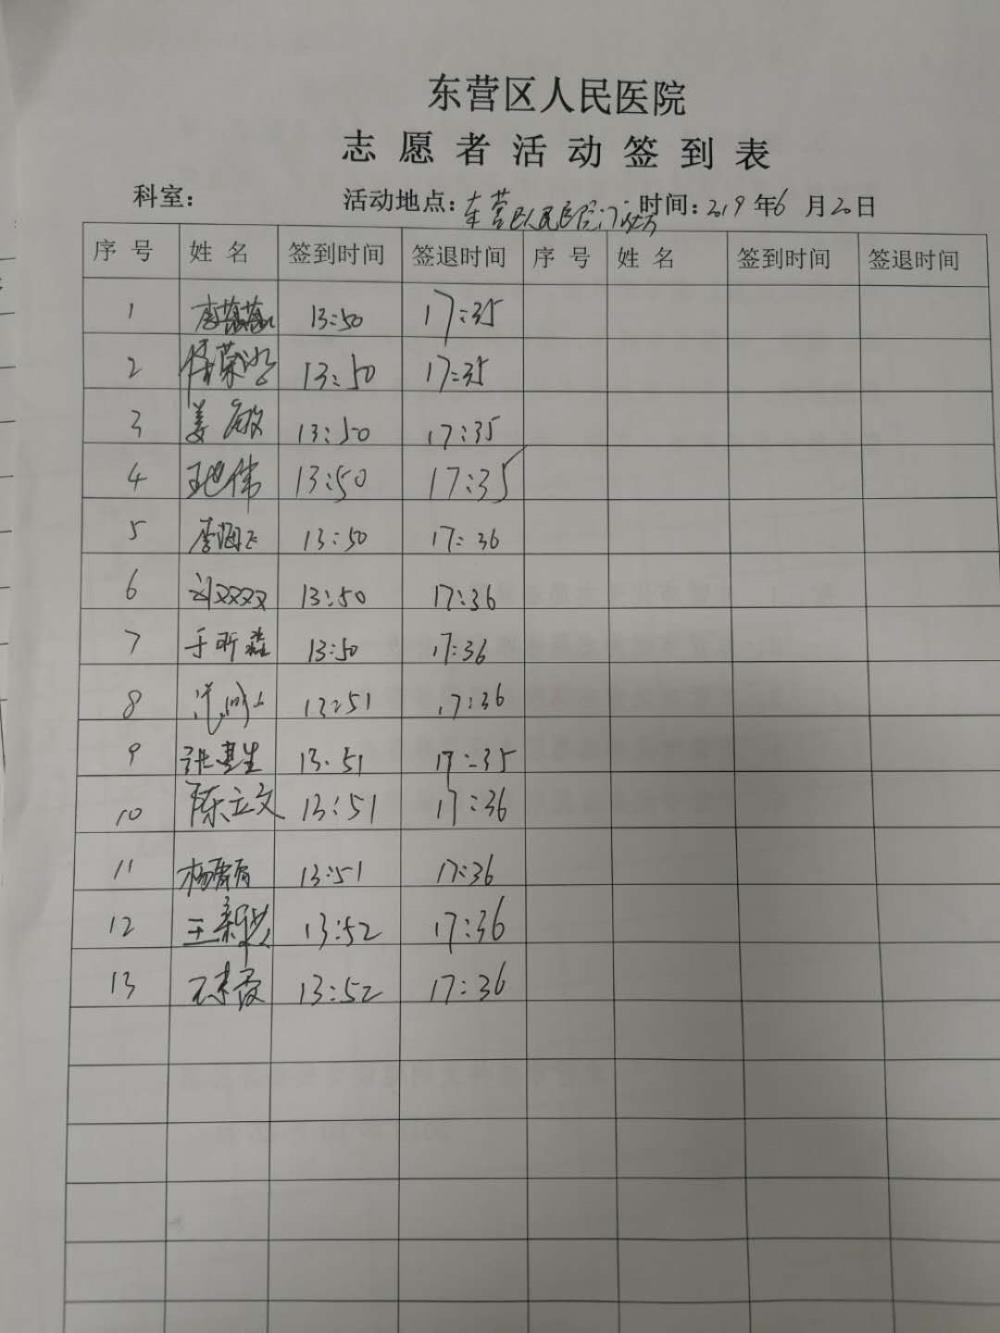 东营区人民医院
志愿者活动签到表
科室： 活动地点：东营区人民医院门诊 时间：2019年6月20日
序号 姓名 签到时间 签退时间 序号 姓名 签到时间 签退时间
1 13:50 17:35
2 13:50 17:35
3 姜敏 13:50 17:35
4 13:50 17:35
5 李海飞 13:50 17:36
6 刘双双 13:50 17:36
7 于昕淼 13:50 17:36
8 13:51 17:36
9 13:51 17:35
10 陈立文 13:51 17:36
11 13:51 17:36
12 13:52 17:36
13 13:52 17:36